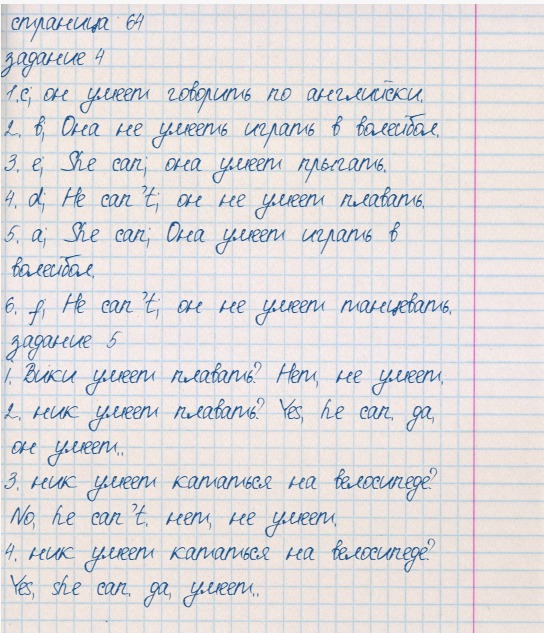 страница 64
задание 4
1.c; он умеет говорить по английски.
2. b; Она не умееть играть в волейбол.
3. e; She can; она умеет прыгать.
4. d; He can't; он не умеет плавать.
5. a; She can; Она умеет играть в
волейбол.
6. f; He can't; он не умеет танцевать.
задание 5
1. Вики умеет плавать? Нет, не умеет.
2. ник умеет плавать? Yes, he can. да,
он умеет..
3. ник умеет кататься на велосипеде?
No, he can't. нет, не умеет.
4. ник умеет кататься на велосипеде?
Yes, she can. да, умеет..